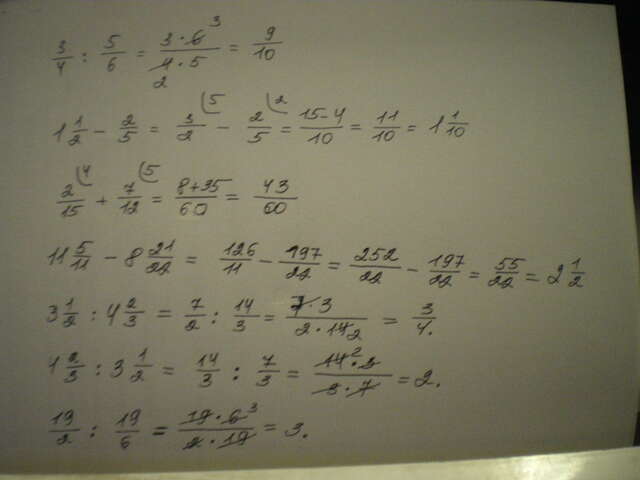 3/4 : 5/6 = 3·6 3/4·5 2 = 9/10
1 1/2 - 2/5 = 3/2 (5 - 2/5 (2 = 15-4/10 = 11/10 = 1 1/10
2/15 (4 + 7/12 (5 = 8+35/60 = 43/60
11 5/11 - 8 21/22 = 126/11 - 197/22 = 252/22 - 197/22 = 55/22 = 2 1/2
3 1/2 : 4 2/3 = 7/2 : 14/3 = 7·3/2·14 2 = 3/4.
1 2/3 : 3 1/2 = 14/3 : 7/3 = 14 2·3/3·7 = 2.
19/2 : 19/6 = 19·6 3/2·19 = 3.